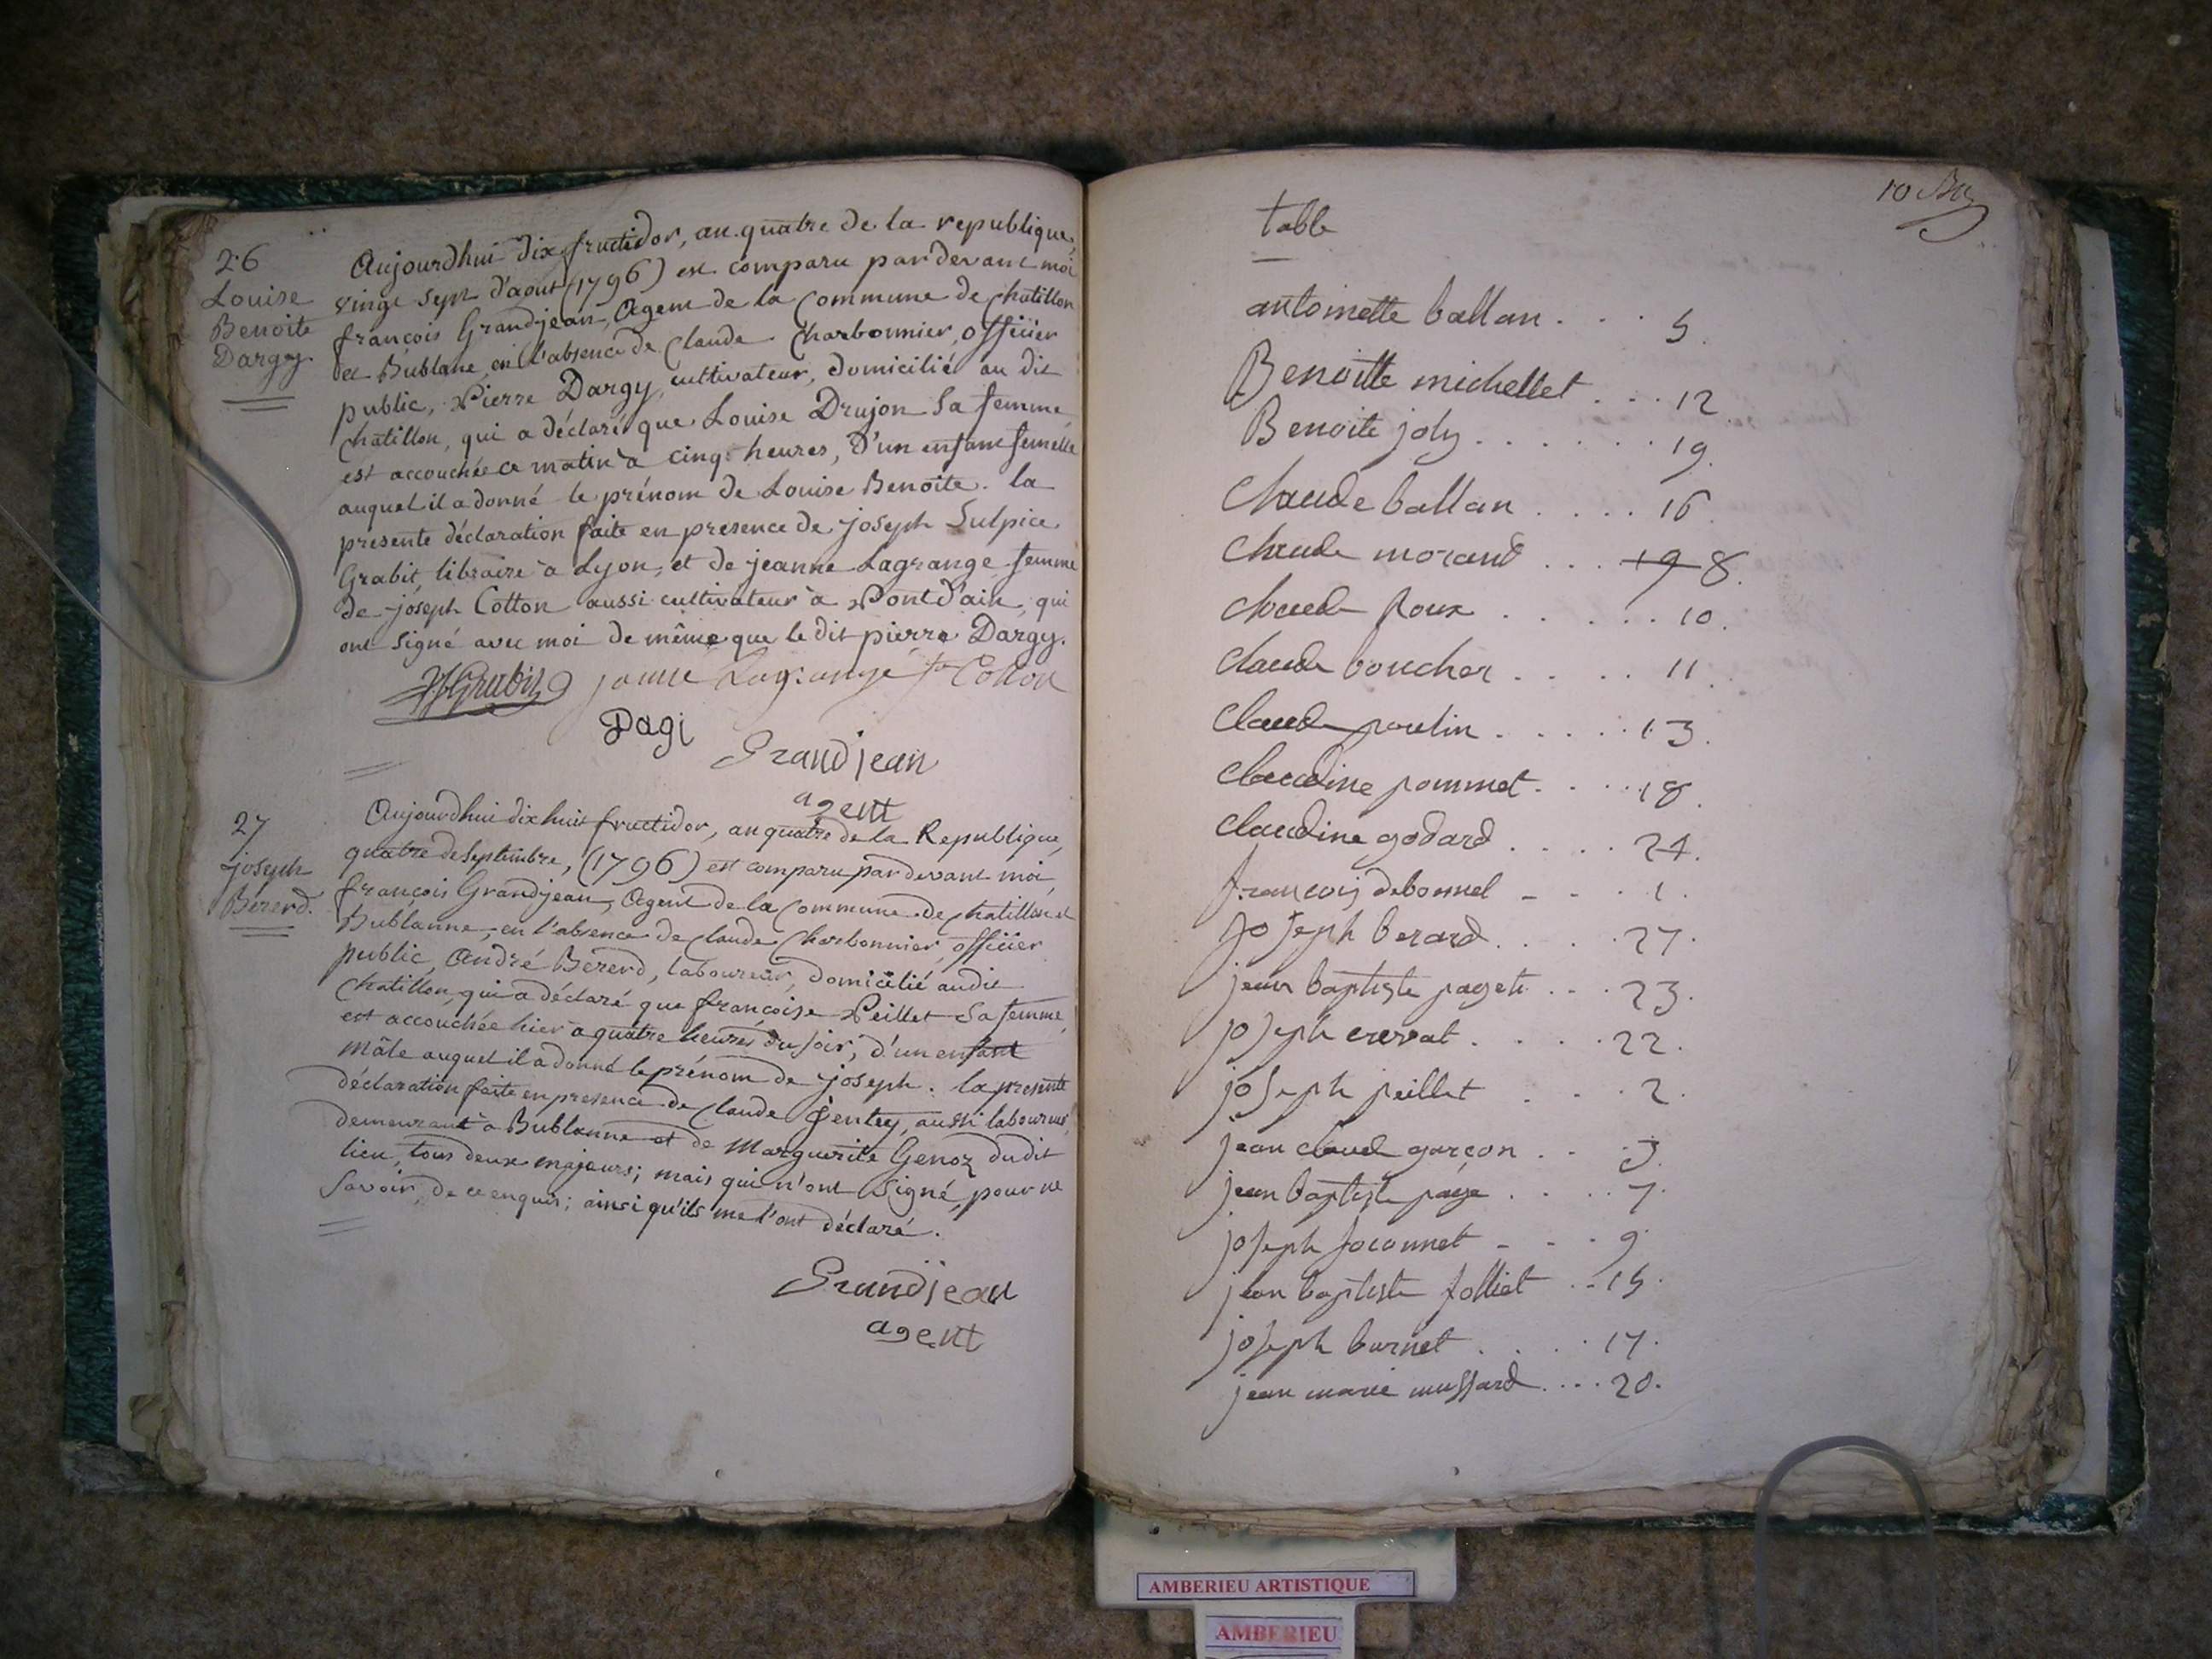 26
Louise
Benoite
Dargy.
Aujourdhui dix fructidor, an quatre de la republique,
vingt sept d'aout (1796) est comparu pardevant moi
françois Grandjean, Agent de la Commune de chatillon
et Bublane, en l'absence de Claude Charbonnier, officier
public, Pierre Dargy, cultivateur, domicilié au dit
chatillon, qui a déclaré que Louise Drujon sa femme
est accouchée ce matin à cinq heures, d'un enfant femelle
auquel il a donné le prénom de Louise Benoite. la
presente déclaration faite en presence de joseph Sulpice
Grabit, libraire à Lyon, et de jeanne Lagrange femme
de joseph Cotton aussi cultivateur à Pontd'ain, qui
ont signé avec moi de même que le dit pierre Dargy.
Grabit janne Lagrange fe Coton
Dagi
Grandjean
agent
27
joseph
Bererd.
Aujourdhui dix huit fructidor, an quatre de la Republique,
quatre de septembre, (1796) est comparu pardevant moi,
françois Grandjean, Agent de la Commune de chatillon et
Bublanne, en l'absence de Claude Charbonnier, officier
public, André Bererd, laboureur, domicilié audit
chatillon, qui a déclaré que françoise Peillet sa femme,
est accouchée hier à quatre heures du soir, d'un enfant
mâle auquel il a donné le prénom de joseph. la presente
déclaration faite en presence de Claude Gentey, aussi laboureur,
demeurant à Bublanne et de Marguerite Genoz dudit
lieu, tous deux majeurs; mais qui n'ont signé, pour ne
savoir, de ce enquis; ainsi qu'ils me l'ont déclaré.
Grandjean
agent
10
table
antoinette ballan . . . 5.
Benoitte michellet . . . 12
Benoite joly . . . . . . 19.
Claude ballan . . . . 16.
claude morand . . . 19 8.
claude Roux . . . . . 10.
claude boucher . . . . 11.
claude poulin . . . . . 13.
claudine pommet . . . . 18.
claudine godard . . . . 24.
françois debonnel - - - 1.
Joseph berard . . . . 27.
jean baptiste pageti . . . 23.
joseph crevat . . . . 22.
joseph peillet . . . 2.
jean claude garçon . . . 3.
jean baptiste page . . . . 7.
joseph foconnet - - - 9
jean baptiste folliet . . 15.
joseph burnet . . . . 17.
jean marie mussard . . . . 20.
AMBERIEU ARTISTIQUE
AMBERIEU